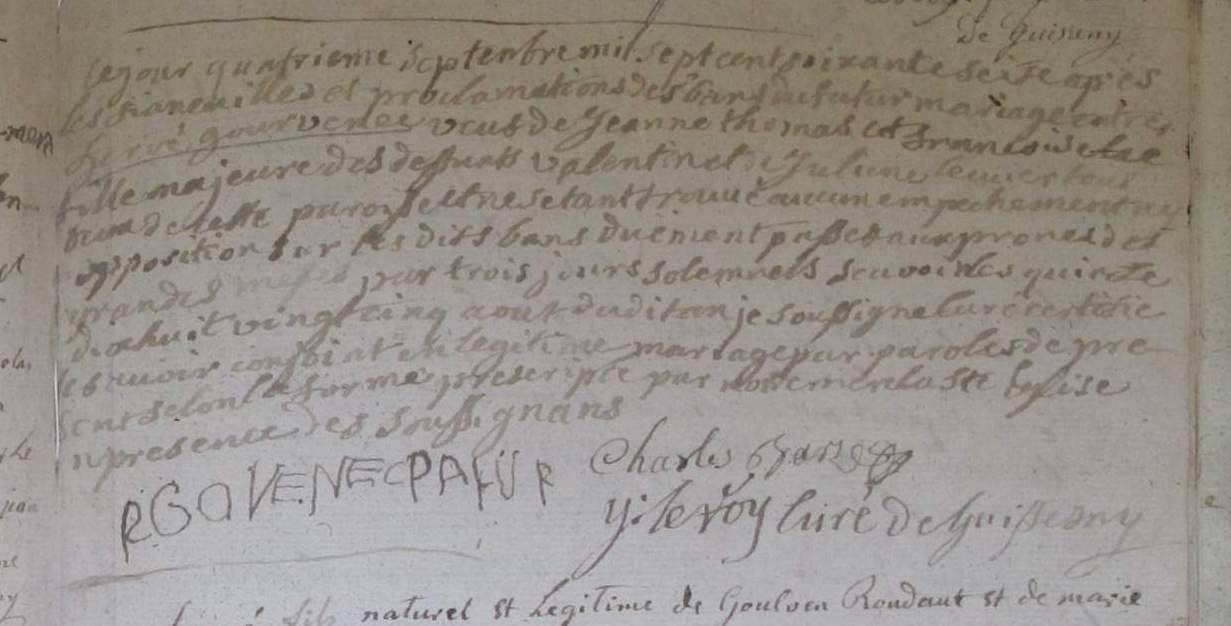 de Guisseny
le jour quatrieme septenbre mil sept cent soixante seise apres
les fiancailles et proclamations des bans du futur mariage entre
hervé gourvenec veuf de Jeanne thomas et francoise
fille majeure des deffunts valentin et de Juliene tous
deux de cette paroisse et ne setant trouvé aucun empechement ny
opposition sur les dits bans duëment passés aux prones des
grandes messes par trois jours solemnels scavoir les quinze
dixhuit vingt cinq aout dudit an je soussigné curé certifie
les avoir conjoint en legitime mariage par paroles de pre
sent selon la forme prescripte par nottre mere la ste Eglise
n presence des soussignans
RGOVENEC PATUR
Charles
y: le roy curé de Guisseny
fils naturel et Legitime de Goulven Rondaut et de marie